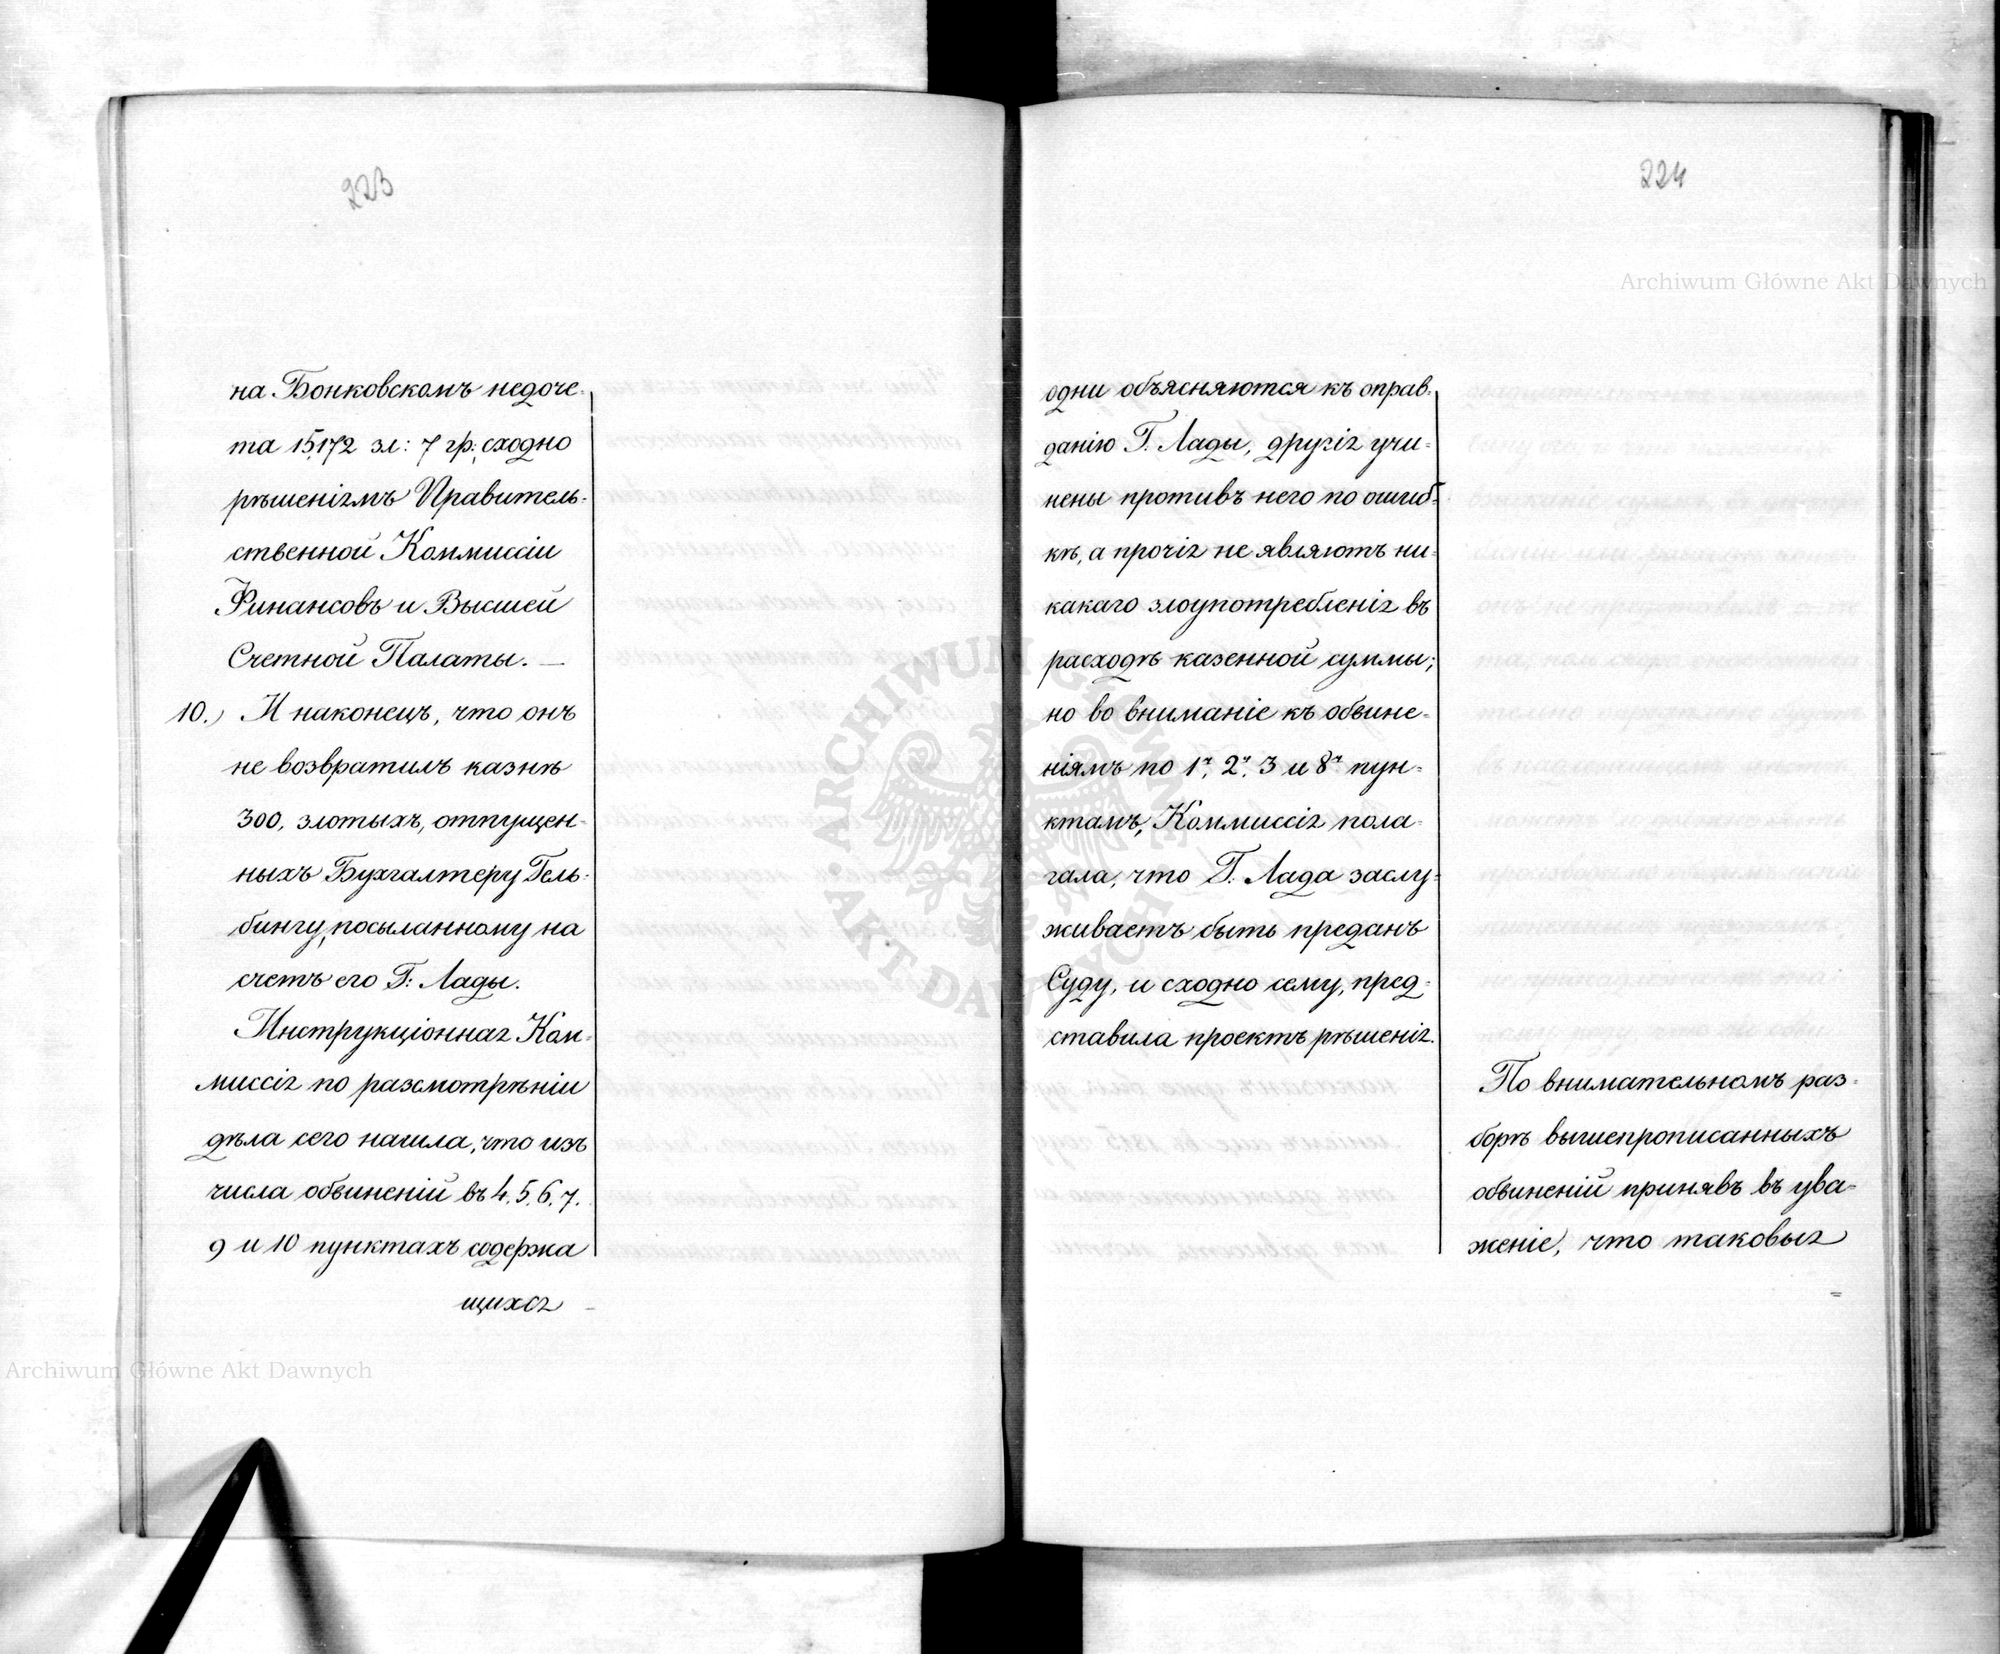 223
на Бонковскомъ недоче-
та 15,172 зл: 7 гр; сходно
рѣшеніямъ Правитель-
ственной Коммиссіи
Финансовъ и Высшей
Счетной Палаты. —
10.) И наконецъ, что онъ
не возвратилъ казнѣ
300, злотыхъ, отпущен-
ныхъ Бухгалтеру Гель-
бингу, посыланному на
счетъ его Г: Лады.
Инструкціонная Ком-
миссія по разсмотрѣніи
дѣла сего нашла, что изъ
числа обвиненій въ 4. 5. 6. 7.
9 и 10 пунктахъ содержа
щихся
224
одни объясняются къ оправ-
данію Г. Лады, другія учи-
нены противъ него по ошиб-
кѣ, а прочія не являютъ ни-
какаго злоупотребленія въ
расходѣ казенной суммы;
но во вниманіе къ обвине-
ніямъ по 1., 2., 3 и 8. пун-
ктамъ, Коммиссія пола-
гала, что Г. Лада заслу-
живаетъ быть преданъ
Суду, и сходно сему, пред-
ставила проектъ рѣшенія.
По внимательномъ раз-
борѣ вышепрописанныхъ
обвиненій принявъ въ ува-
женіе, что таковыя
Archiwum Główne Akt Dawnych
Archiwum Główne Akt Dawnych
ARCHIWUM GŁÓWNE AKT DAWNYCH